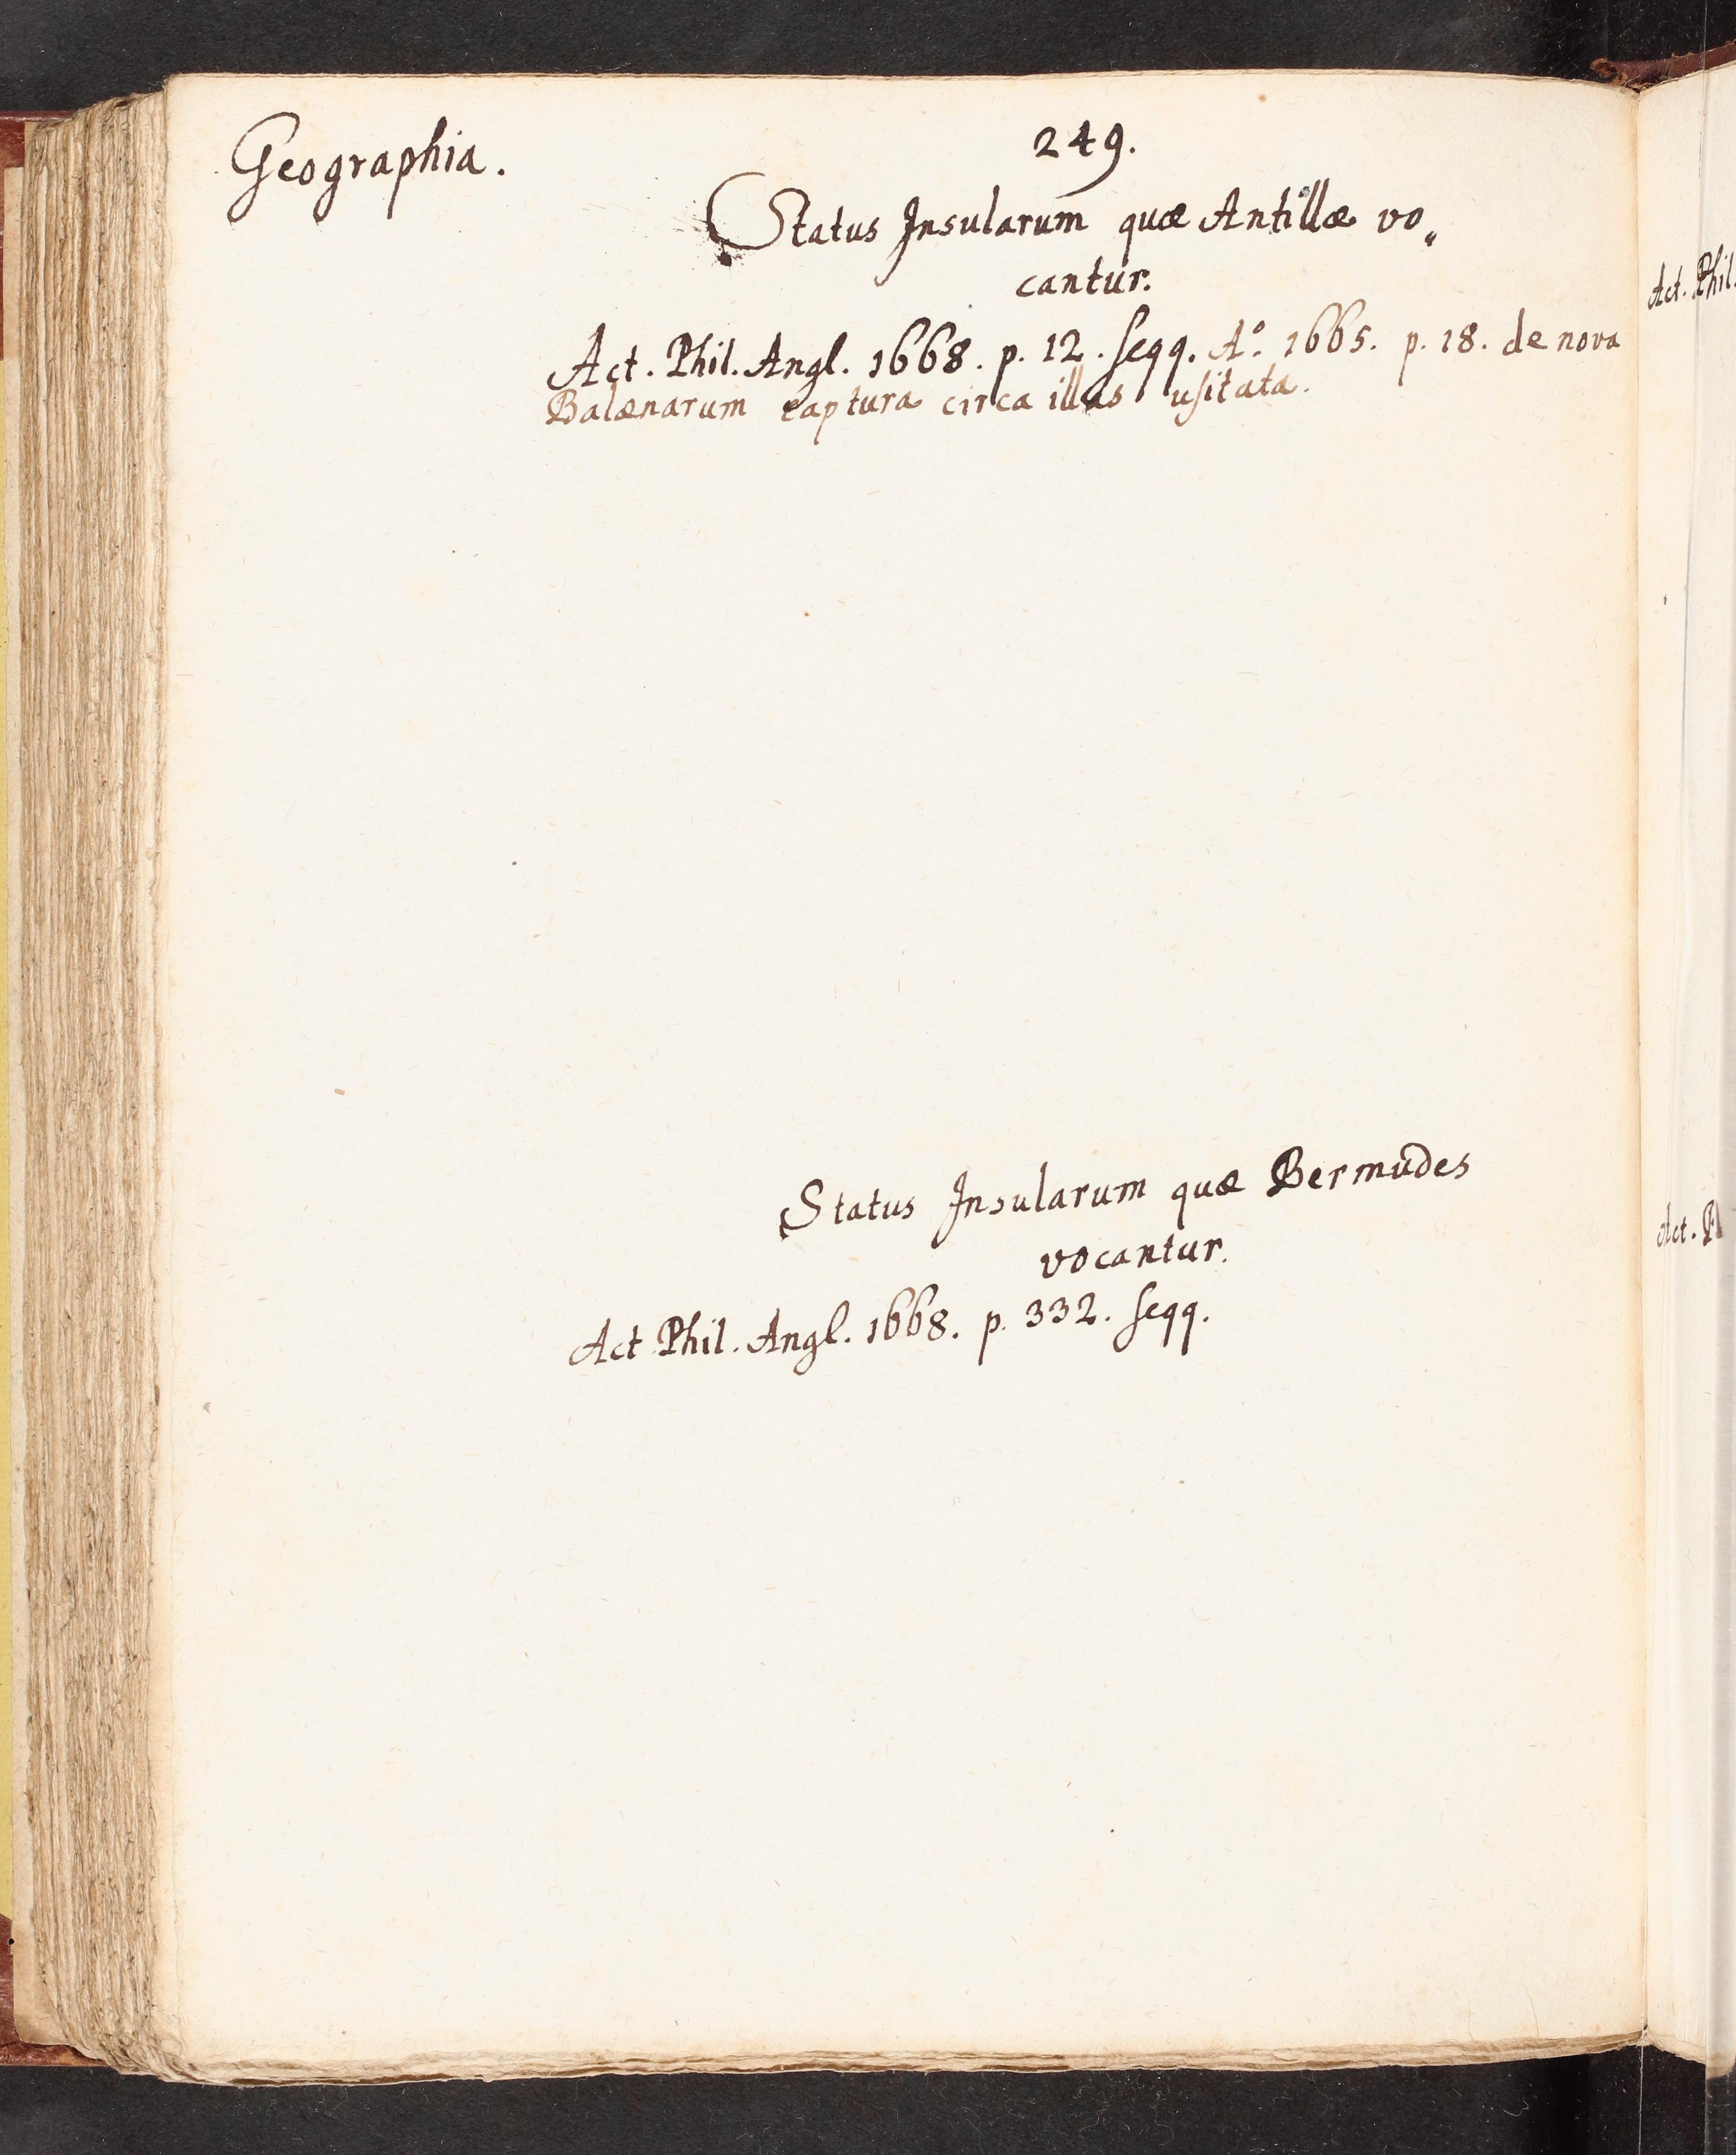 Geographia.
249.
Status Insularum quæ Antillæ vo„
cantur.
Act. Phil. Angl. 1668. p. 12. seqq. A°. 1665. p. 18. de nova
Balænarum captura circa illas usitata.
Status Insularum quæ Bermudes
vocantur.
Act Phil. Angl. 1668. p. 332. seqq.
Act. Phil.
Act.